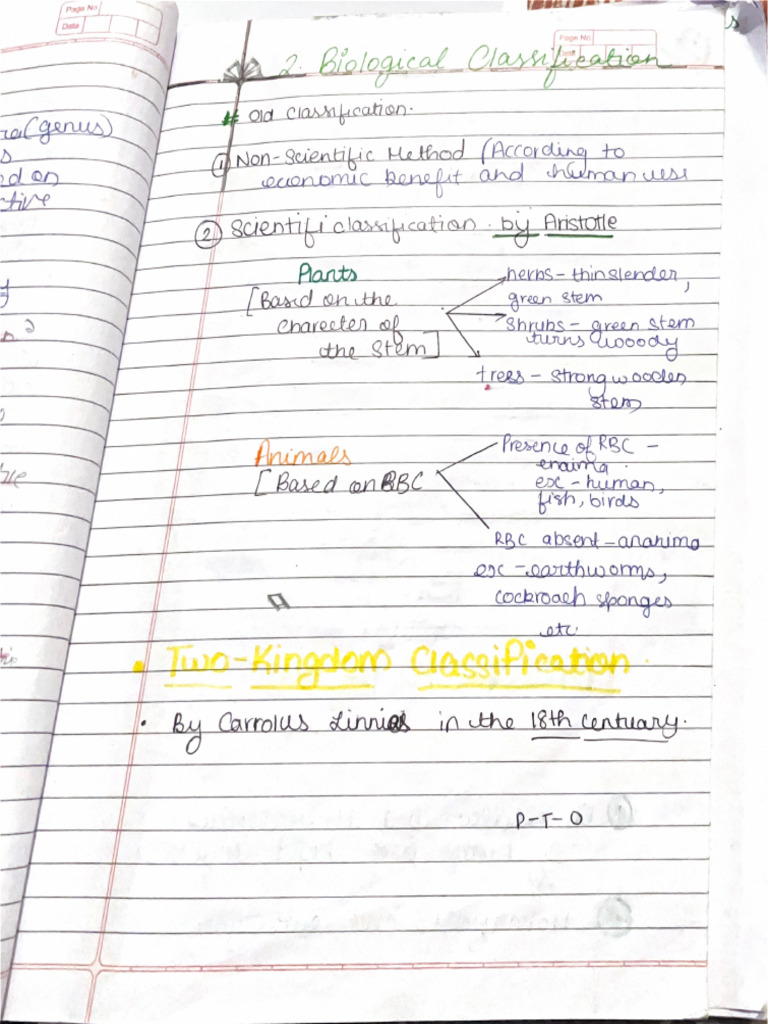 Page No
Date
ra (genus)
s
ed on
tive
Page No
2. Biological Classification
# Old Classification.
① Non-Scientific Method (According to
economic benefit and human use
② Scientifi classification by Aristotle
Plants
[Based on the
charecter of
the Stem]
herbs - thin slender,
green stem
Shrubs - green stem
turns wooody
trees - strong wooden
stem
Animals
[Based on RBC
Presence of RBC -
enaima.
ex - human,
fish, birds
RBC absent - ananima
ex - earthworms,
cockroach sponges
etc
• Two-Kingdom Classification.
• By Carrolus Linnies in the 18th centuary.
P-T-O